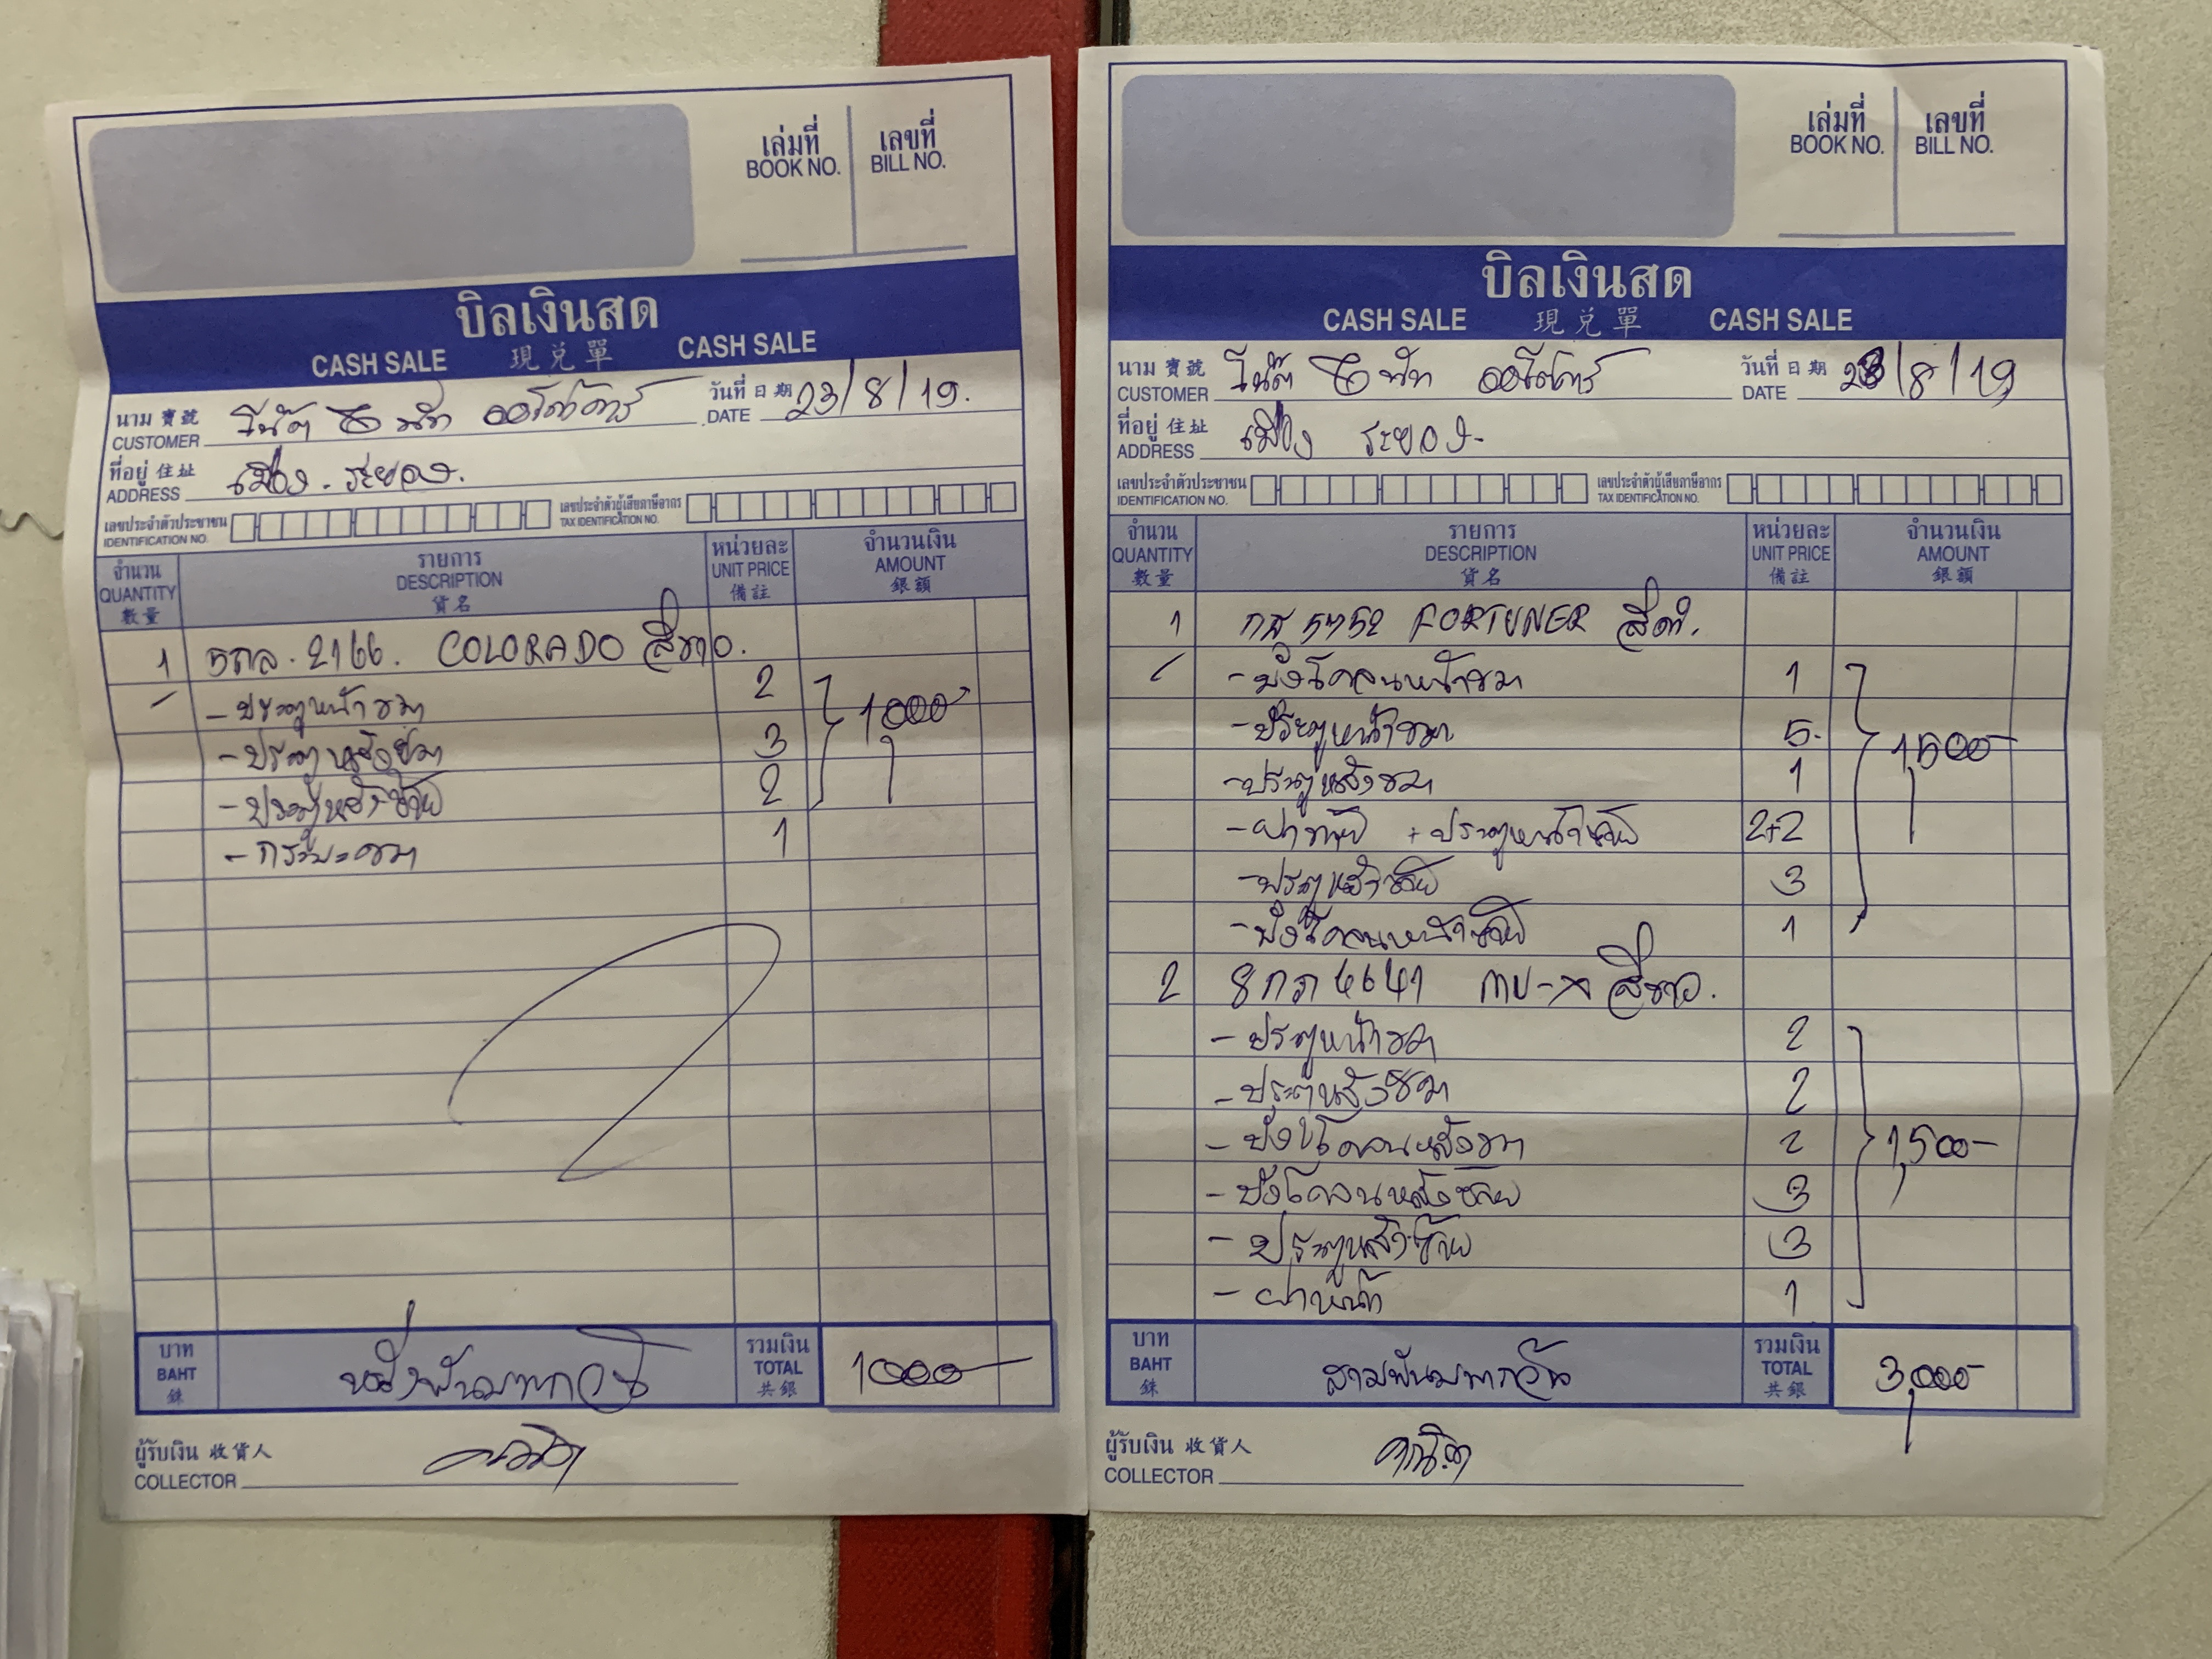 เล่มที่ เลขที่
BOOK NO. BILL NO.
บิลเงินสด
CASH SALE 現兌單 CASH SALE
นาม 寶號 วันที่ 日期
CUSTOMER DATE 23/8/19.
ที่อยู่ 住址 เมือง. ระยอง.
ADDRESS
เลขประจำตัวประชาชน เลขประจำตัวผู้เสียภาษีอากร
IDENTIFICATION NO. TAX IDENTIFICATION NO.
จำนวน รายการ หน่วยละ จำนวนเงิน
QUANTITY DESCRIPTION UNIT PRICE AMOUNT
數量 貨名 備註 銀額
1 2166. COLORADO สีขาว.
- ประตูหน้าขวา 2
- ประตูหลังขวา 3 1000
- ประตูหลังซ้าย 2
- กระบะขวา 1
บาท หนึ่งพันบาทถ้วน รวมเงิน 1000
BAHT TOTAL
銖 共銀
ผู้รับเงิน 收貨人
COLLECTOR
เล่มที่ เลขที่
BOOK NO. BILL NO.
บิลเงินสด
CASH SALE 現兌單 CASH SALE
นาม 寶號 วันที่ 日期
CUSTOMER DATE 23/8/19
ที่อยู่ 住址 เมือง ระยอง
ADDRESS
เลขประจำตัวประชาชน เลขประจำตัวผู้เสียภาษีอากร
IDENTIFICATION NO. TAX IDENTIFICATION NO.
จำนวน รายการ หน่วยละ จำนวนเงิน
QUANTITY DESCRIPTION UNIT PRICE AMOUNT
數量 貨名 備註 銀額
1 FORTUNER สีดำ.
- บังโคลนหน้าขวา 1
- ประตูหน้าขวา 5 1,500
- ประตูหลังขวา 1
- ฝาท้าย + ประตูหน้าซ้าย 2+2
- ประตูหลังซ้าย 3
- บังโคลนหน้าซ้าย 1
2 8กภ 4641 mu-x สีขาว.
- ประตูหน้าขวา 2
- ประตูหลังขวา 2
- บังโคลนหลังขวา 2 1,500-
- บังโคลนหลังซ้าย 3
- ประตูหลังซ้าย 3
- ฝาหน้า 1
บาท สามพันบาทถ้วน รวมเงิน 3,000
BAHT TOTAL
銖 共銀
ผู้รับเงิน 收貨人
COLLECTOR